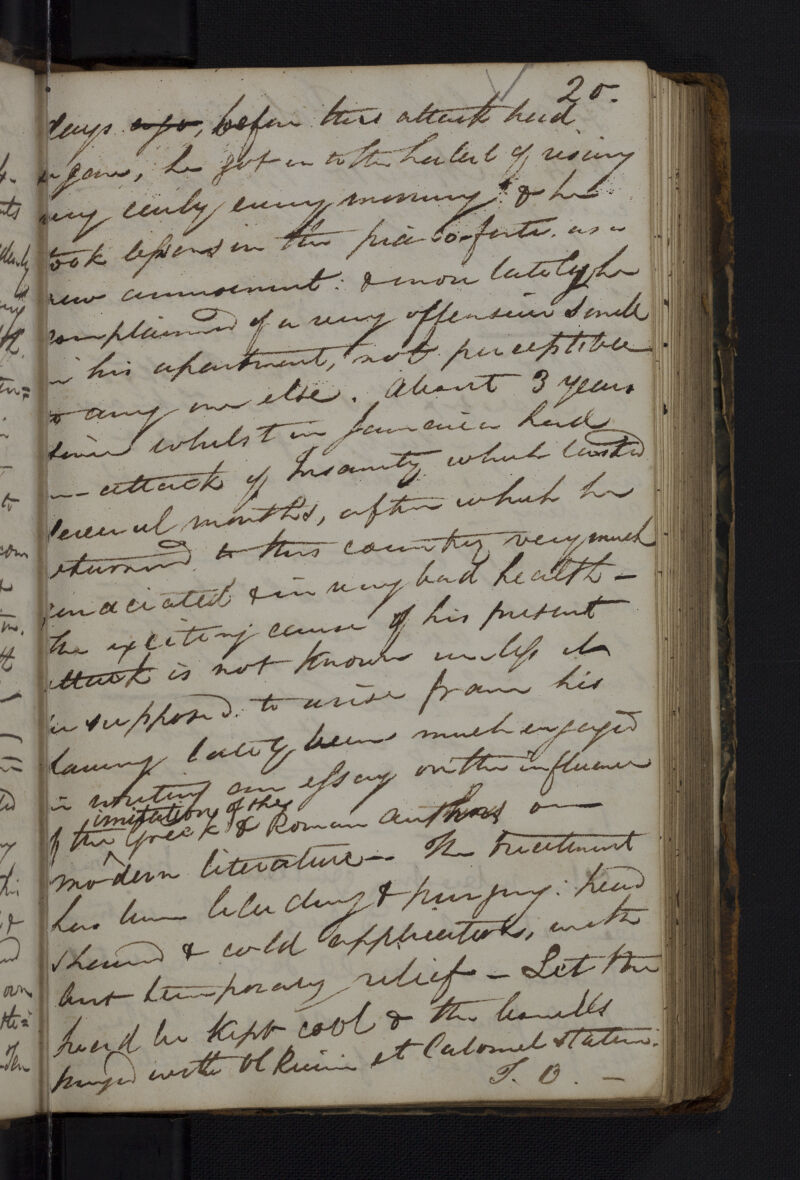 20.
days ago, before this attack had
began, he got in to the habit of rising
very early every morning & he
took lessons in the piano-forte as a
new amusement: & more lately he
complained of a very offensive smell
in his apartment, not perceptible
to any one else. About 3 years
since whilst in Jamaica had
an attack of Insanity which lasted
several months, after which he
returned to this country very much
emaciated & in very bad health -
the exciting cause of his present
attack is not known unless it
be supposed to arise from his
having lately been much engaged
in writing an essay on the influence
imitation of the
of the Greek & Roman authors on
modern literature - The treatment
has been bleeding & purging: head
shaved & cold applications, with
but temporary relief - Let the
head be kept cool & the bowels
purged with Ol Ricini et Calomel statim.
T. O. -